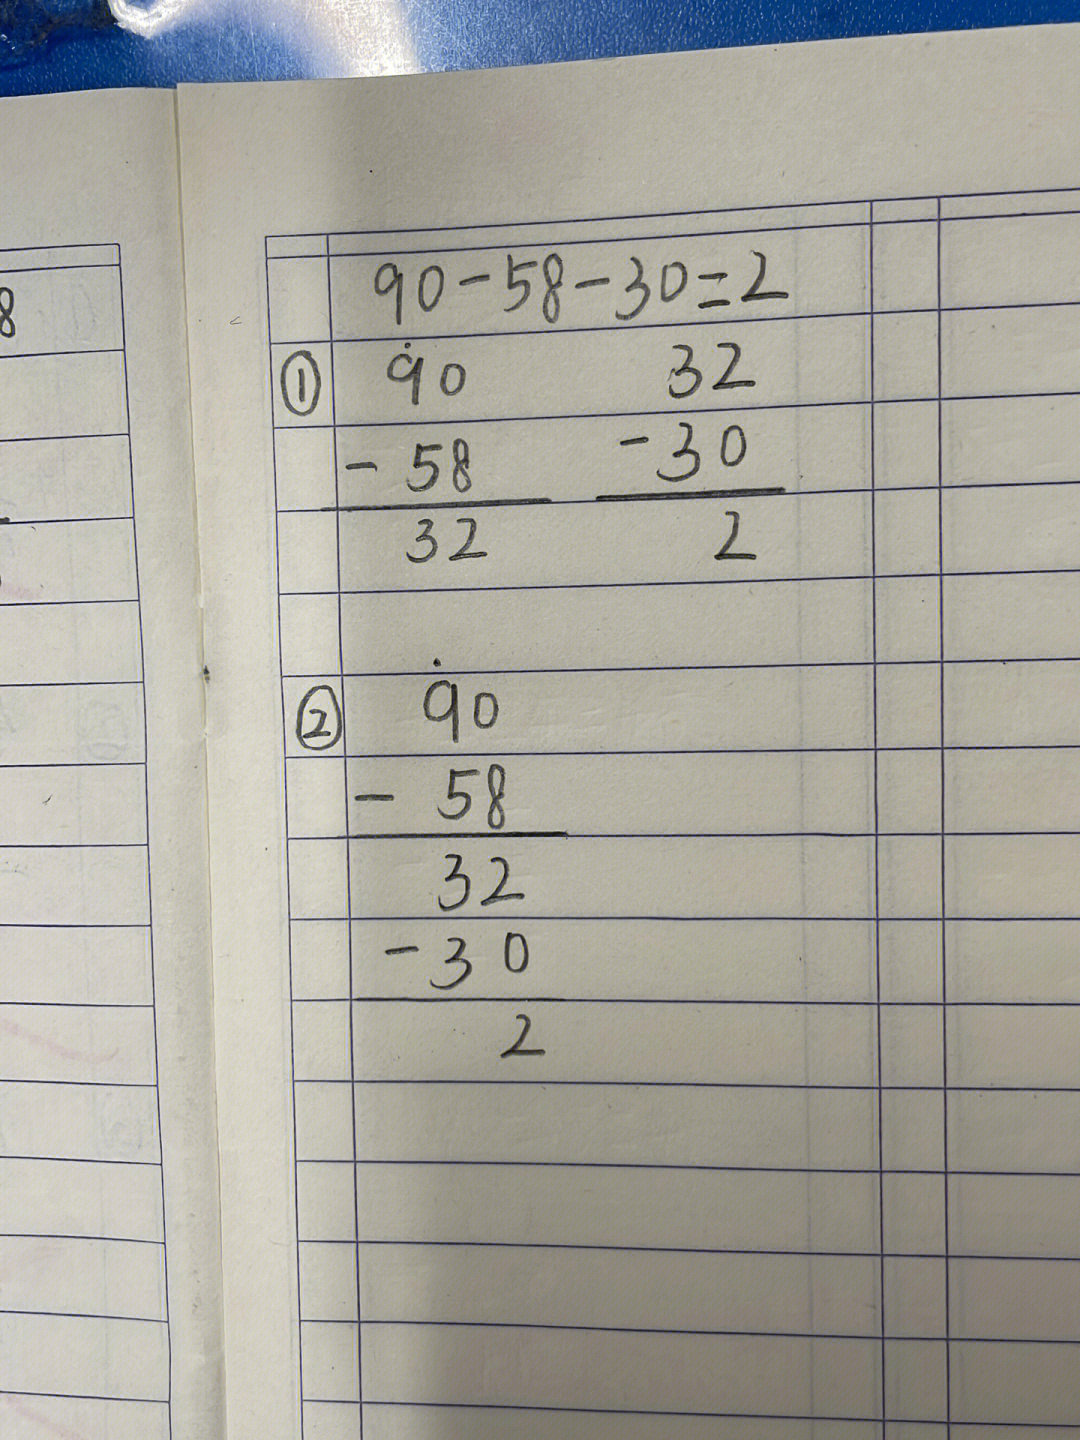 8
90-58-30=2
① 90 32
- 58 -30
32 2
② 90
- 58
32
-30
2